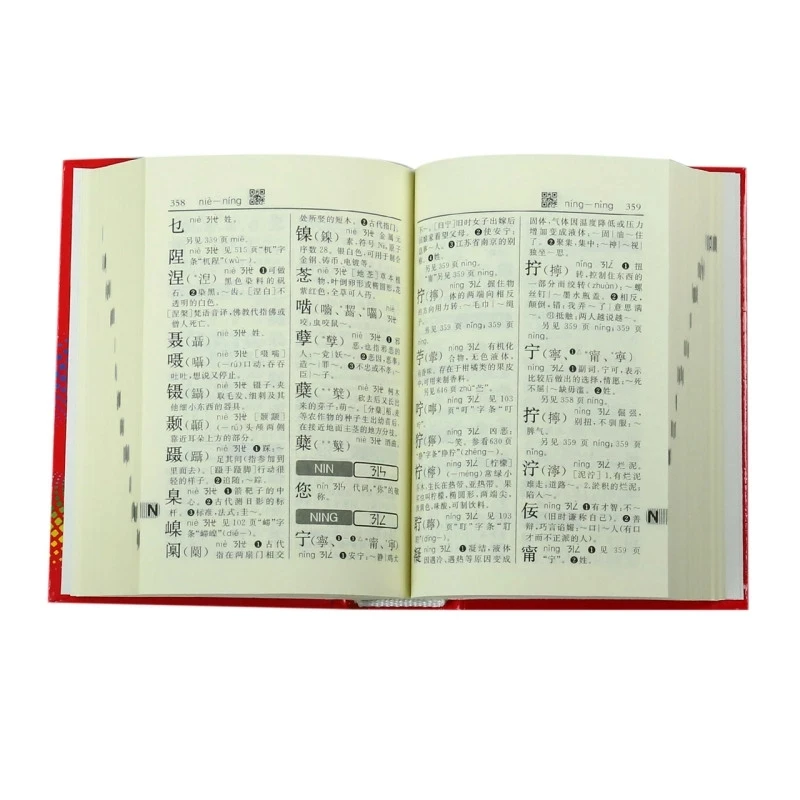 358 niè—níng
乜 niè ㄋㄧㄝˋ 姓。
另见 359 页 miē。
陧 niè ㄋㄧㄝˋ 见 515 页"杌"字
条"杌陧"(wù-)。
涅(*湼) niè ㄋㄧㄝˋ ❶可做
黑色染料的矾
石。❷染黑:~齿。[涅白]不
透明的白色。
[涅槃]梵语音译,佛教代指佛或
僧人死亡。
聂(聶) niè ㄋㄧㄝˋ 姓。
嗫(囁) niè ㄋㄧㄝˋ [嗫嚅]
(-rú)口动,吞吞
吐吐,想说又停止。
镊(鑷) niè ㄋㄧㄝˋ 镊子,夹
取毛发、细刺及其
他细小东西的器具。
颞(顳) niè ㄋㄧㄝˋ [颞颥]
(-rú)头颅两侧
靠近耳朵上方的部分。
蹑(躡) niè ㄋㄧㄝˋ ❶踩:~
足其间(指参加到
里面去)。[蹑手蹑脚]行动很轻
的样子。❷追随:~踪。
臬 niè ㄋㄧㄝˋ ❶箭靶子的中
心。❷古代测日影的标
杆。❸标准,法式:圭~。
嵲 niè ㄋㄧㄝˋ 见 102 页"嵽"字
条"嵽嵲"(dié-)。
闑(闑) niè ㄋㄧㄝˋ ❶古代
指在两扇门相交
处所竖的短木。❷古代指门。
镍(鎳) niè ㄋㄧㄝˋ 金属元
素,符号 Ni,原子
序数 28。银白色,可用于制合
金钢、铸币、电镀等。
菍 niè ㄋㄧㄝˋ [地菍]草本植
物,叶倒卵形或椭圆形,花
紫红色,全草可入药。
啮(嚙、*齧、*囓) niè ㄋㄧㄝˋ
咬:虫咬鼠~。
孽(*孼) niè ㄋㄧㄝˋ ❶邪
恶,也指邪恶的
人:~党|妖~。❷恶因,恶事:
造~|罪~。❸不忠或不孝:~
臣|~子。
蘖(*櫱) niè ㄋㄧㄝˋ 树木
砍去后又长出
来的芽子:萌~。[分蘖]稻、麦
等农作物的种子生出幼苗后,
在接近地面主茎的地方分枝。
糵(*櫱) niè ㄋㄧㄝˋ 酒曲。
NIN ㄋㄧㄣ
您 nín ㄋㄧㄣˊ 代词,"你"的敬
称。
NING ㄋㄧㄥ
宁(寧、*甯、*寍) níng ㄋㄧㄥˊ ❶安宁:~静|鸡犬
níng—nìng 359
[归宁]旧时女子出嫁后
回娘家看望父母。❷使安宁:
~人。❸江苏省南京的别
另见 359 页 nìng。
拧(擰) níng ㄋㄧㄥˊ 握住物
体的两端向相反
方向用力转:~毛巾|~绳
另见 359 页 nǐng;359 页
苧(薴) níng ㄋㄧㄥˊ 有机化
合物,无色液体,
存在于柑橘类的果皮
中,可用来制香料。
另见 646 页 zhù"苎"。
咛(嚀) níng ㄋㄧㄥˊ 见 103
页"叮"字条"叮
狞(獰) níng ㄋㄧㄥˊ 凶恶:
~笑。参看 630 页
字条"狰狞"(zhēng-)。
柠(檸) níng ㄋㄧㄥˊ [柠檬]
(-méng)常绿小
乔木,生长在热带、亚热带。果
实叫柠檬,椭圆形,两端尖,
淡黄色,味酸,可制饮料。
聍(聹) níng ㄋㄧㄥˊ 见 103
页"耵"字条"耵
聍"(dīng-)。
凝 níng ㄋㄧㄥˊ ❶凝结,液体
因遇冷、气体因温度降低或压力
固体,气体因温度降低或压力
增加变成液体:~固|油~住
了。❷聚集,集中:~神|~视|
独坐~思。
拧(擰) nǐng ㄋㄧㄥˇ ❶扭
转,控制住东西的
一部分而绞转(zhuǎn):~螺
丝钉|~墨水瓶盖。❷相反,
颠倒,错:我弄~了|意思满
~。❸低触:两人越说越~。
另见 359 页 níng;359 页
nìng。
宁(寧、*甯、*寍) nìng ㄋㄧㄥˋ
❶副词,宁可,表示
比较后做出的选择,情愿:~死
不屈|~缺毋滥。❷姓。
另见 359 页 níng。
拧(擰) nìng ㄋㄧㄥˋ 倔强,
别扭,不驯服:~
脾气。
另见 359 页 níng;359 页
nǐng。
泞(濘) nìng ㄋㄧㄥˋ 烂泥。
[泥泞] 1.有烂泥
难走:道路~。2.淤积的烂泥:
陷入~。
佞 nìng ㄋㄧㄥˋ ❶有才智:不~
(旧时谦称自己)。❷善
辩,巧言谄媚:~口|~人(有口
才而不正派的人)。
甯 nìng ㄋㄧㄥˋ ❶见 359 页
"宁"。❷姓。
N
N